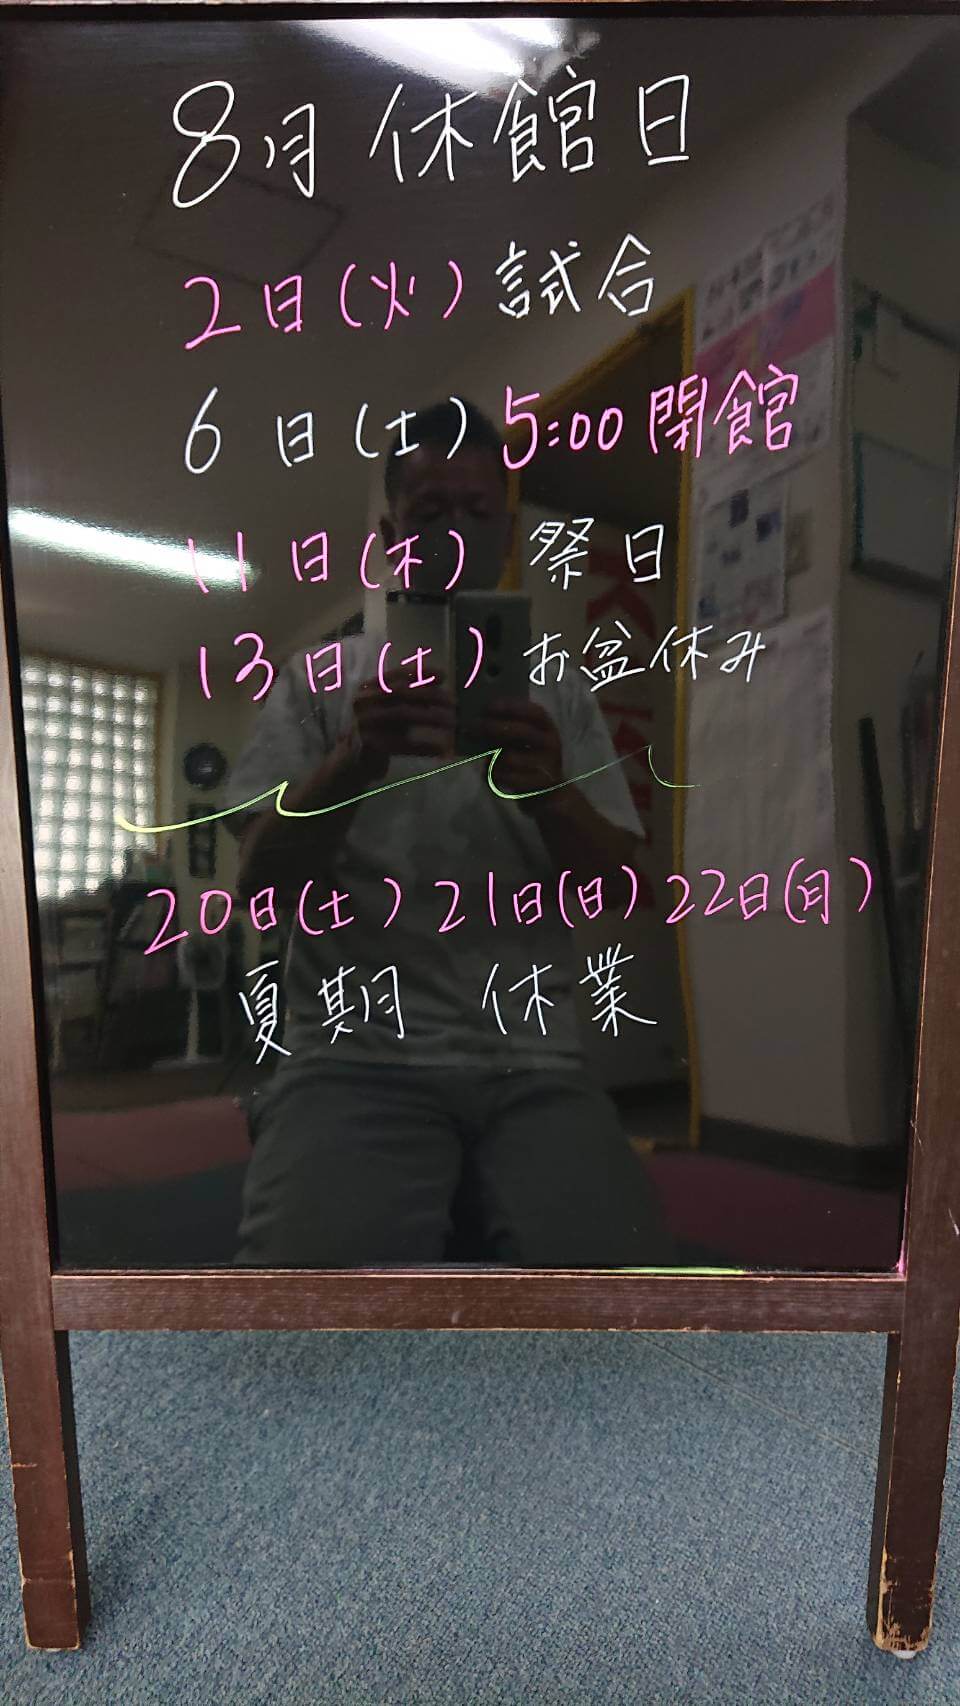 8月 休館日
2日(火) 試合
6日(土) 5:00 閉館
11日(木) 祭日
13日(土) お盆休み
20日(土) 21日(日) 22日(月)
夏期 休業